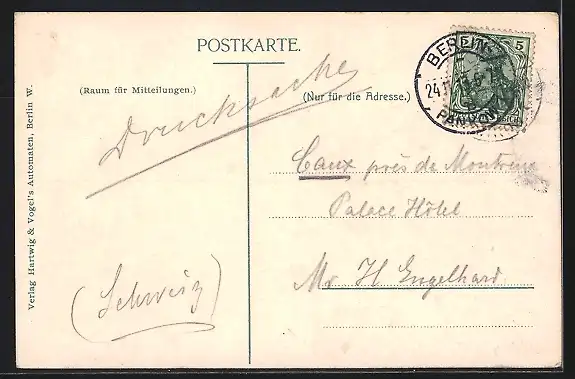 POSTKARTE.
(Raum für Mitteilungen.)
(Nur für die Adresse.)
Drucksache
BERLIN
PANKOW
24.11
5
5
Caux près de Montreux
Palace Hôtel
Mr H Engelhard
(Schweiz)
Verlag Hartwig & Vogel's Automaten, Berlin W.